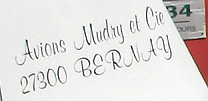 Avions Mudry et Cie
27300 BERNAY
34
OURS